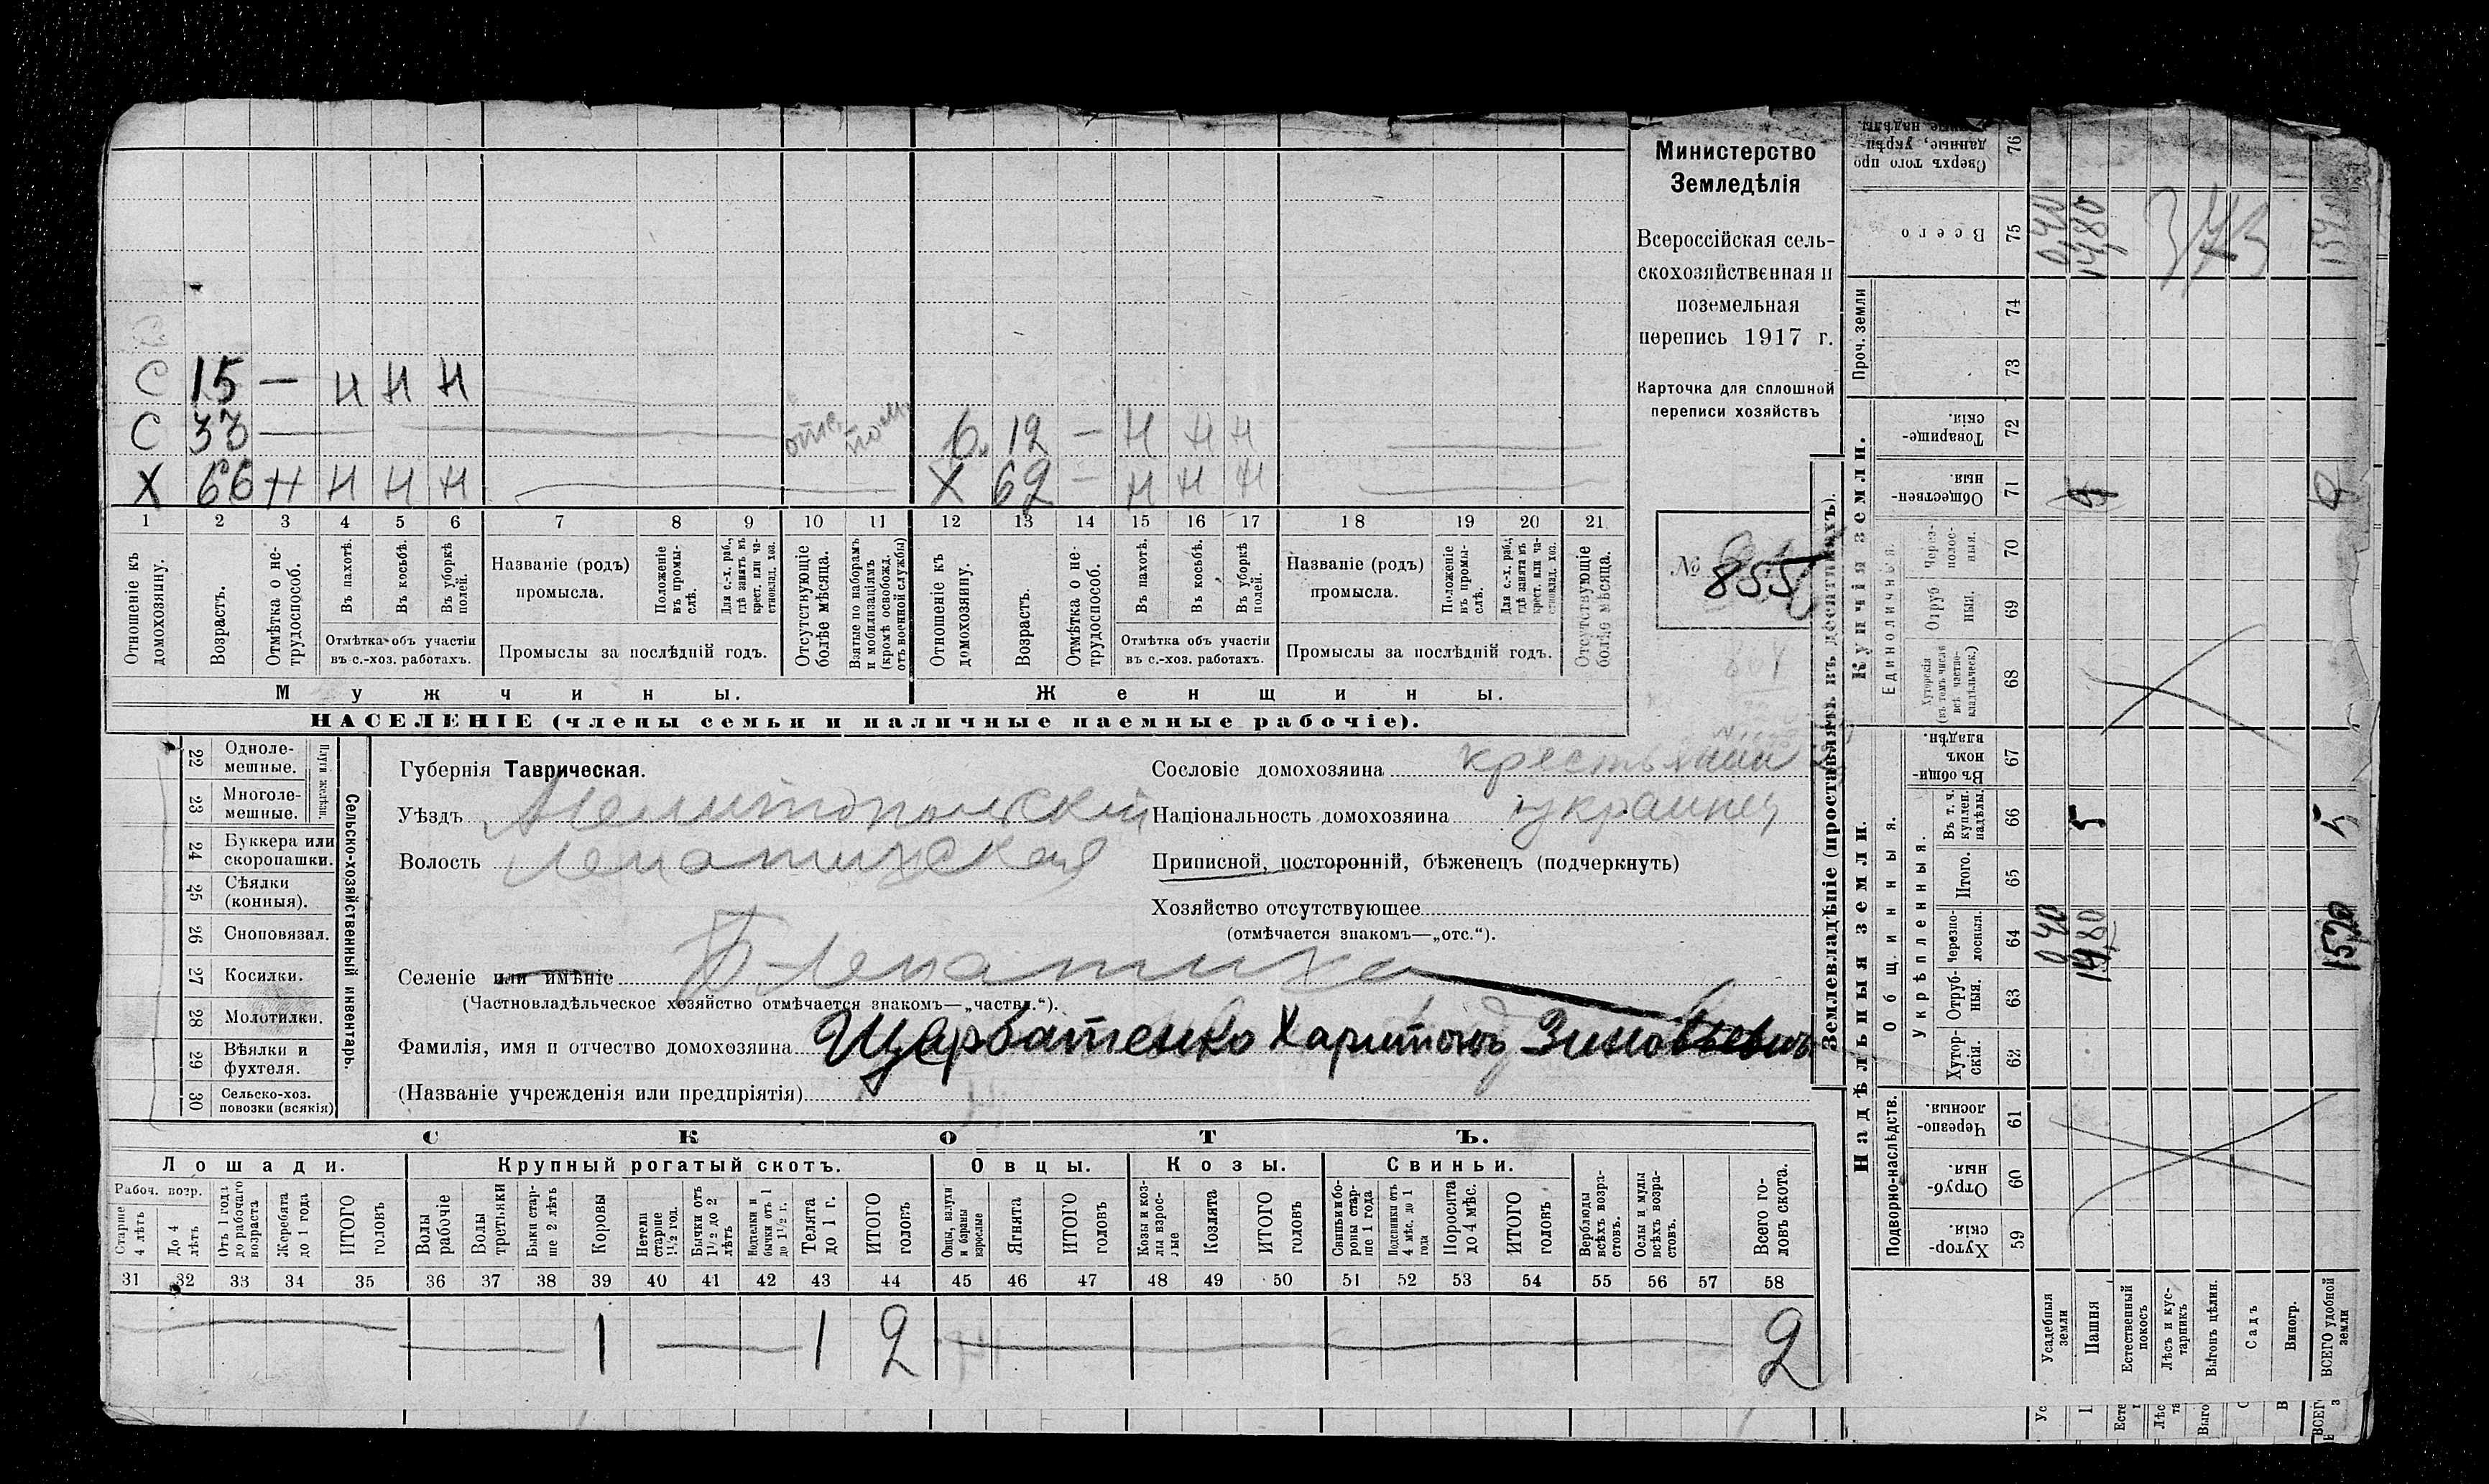 С 15 — н н н
С 33 — отс. полн.
Х 66 н н н н
6. 12 — н н н
Х 62 — н н н
1 2 3 4 5 6 7 8 9 10 11 12 13 14 15 16 17 18 19 20 21
Отношеніе къ домохозяину.
Возрасть.
Отмѣтка о нетрудоспособ.
Въ пахотѣ.
Въ косьбѣ.
Въ уборкѣ полей.
Отмѣтка объ участіи въ с.-хоз. работахъ.
Названіе (родъ) промысла.
Положеніе въ промыслѣ.
Для с.-х. раб., гдѣ занятъ въ крест. или частновлад. хоз.
Промыслы за послѣдній годъ.
Отсутствующіе болѣе мѣсяца.
Взятые по наборамъ и мобилизаціямъ (кромѣ освобожд. отъ военной службы)
Отношеніе къ домохозяину.
Возрастъ.
Отмѣтка о нетрудоспособ.
Въ пахотѣ.
Въ косьбѣ.
Въ уборкѣ полей.
Отмѣтка объ участіи въ с.-хоз. работахъ.
Названіе (родъ) промысла.
Положеніе въ промыслѣ.
Для с.-х. раб., гдѣ занята въ крест. или частновлад. хоз.
Промыслы за послѣдній годъ.
Отсутствующіе болѣе мѣсяца.
Мужчины.
Женщины.
НАСЕЛЕНІЕ (члены семьи и наличные наемные рабочіе).
Министерство
Земледѣлія
Всероссійская сель-
скохозяйственная и
поземельная
перепись 1917 г.
Карточка для сплошной
переписи хозяйствъ
№ 855
22 Одноле-
мешные.
23 Многоле-
мешные.
Плуги желѣзн.
24 Буккера или
скоропашки.
25 Сѣялки
(конныя).
26 Сноповязал.
27 Косилки.
28 Молотилки.
29 Вѣялки и
фухтеля.
30 Сельско-хоз.
повозки (всякія)
Сельско-хозяйственный инвентарь.
Губернія Таврическая.
Уѣздъ Мелитопольскій
Волость Лепатихская
Селеніе или имѣніе Б-Лепатиха
(Частновладѣльческое хозяйство отмѣчается знакомъ—„частвл.“).
Фамилія, имя и отчество домохозяина Щарбатенко Харитонъ Зиновьевичъ
(Названіе учрежденія или предпріятія)
Сословіе домохозяина крестьянин
Національность домохозяина украинец
Приписной, посторонній, бѣженецъ (подчеркнуть)
Хозяйство отсутствующее
(отмѣчается знакомъ—„отс.“).
СКОТЪ.
Лошади. Крупный рогатый скотъ. Овцы. Козы. Свиньи.
Рабоч. возр.
Старше 4 лѣтъ
До 4 лѣтъ
Отъ 1 года до рабочаго возраста
Жеребята до 1 года
ИТОГО головъ
Волы рабочіе
Волы третьяки
Быки старше 2 лѣтъ
Коровы
Нетели старше 1 1/2 год.
Бычки отъ 1 1/2 до 2 лѣтъ
Нодтелки и бычки отъ 1 до 1 1/2 г.
Телята до 1 г.
ИТОГО головъ
Овцы, валухи и бараны взрослые
Ягнята
ИТОГО головъ
Козы и козлы взрослые
Козлята
ИТОГО головъ
Свиньи и боровы старше 1 года
Подсвинки отъ 4 мѣс. до 1 года
Поросята до 4 мѣс.
ИТОГО головъ
Верблюды всѣхъ возрастовъ.
Ослы и мулы всѣхъ возрастовъ.
Всего головъ скота.
31 32 33 34 35 36 37 38 39 40 41 42 43 44 45 46 47 48 49 50 51 52 53 54 55 56 57 58
1 1 2 2
Землевладѣніе (проставлять въ десятинахъ).
Сверхъ того проданные, укрѣпленные надѣлы. 76
Всего 75 0,40 14,80
Проч. земли 74 73
Купчія земли.
Товарищескія. 72
Общественныя. 71
Единоличныя.
Черезполосныя. 70
Отрубныя. 69
Хуторскія (въ томъ числѣ всѣ частновладѣльческ.) 68
Надѣльныя земли.
Общинныя.
Въ общинномъ владѣн. 67
Укрѣпленныя.
Въ т. ч. куплен. надѣлы. 66 5 5
Итого. 65
Черезполосныя. 64 0,40 14,80 15,20
Отрубныя. 63
Хуторскія. 62
Подворно-наслѣдств.
Черезполосныя. 61
Отрубныя. 60
Хуторскія. 59
Усадебныя земли
Пашня
Естественный покосъ
Лѣсъ и кустарникъ
Выгонъ цѣлин.
Садъ
Виногр.
ВСЕГО удобной земли